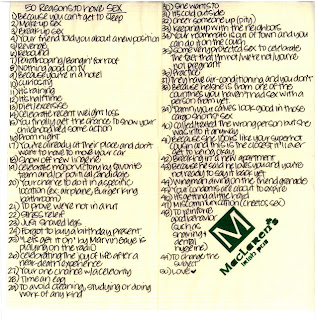 50 Reasons to have SEX
1) Because you can't get to sleep
2) Make up sex
3) Break up sex
4) Your friend told you about a new position
5) Revenge
6) Rebound
7) Temptrooping/Bangin' for roof
8) Nothing good on TV
9) Because you're in a hotel
10) Curiosity
11) It's raining
12) It's halftime
13) Diet/exercise
14) Celebrate recent weight loss
15) You finally get the chance to show your childhood bed some action
16) Prom night
17) You're already at their place and don't want to have to move your car
18) Show off new lingerie
19) Celebrate major victory by favorite team and/or political candidate
20) Your chance to do it in a specific location (ex: airplane, Burger King bathroom)
21) To get out of helping someone move
22) Stress relief
23) Just shaved legs
24) Forgot to buy a birthday present
25) "Let's get it on" by Marvin Gaye is playing on the radio
26) Celebrating the joy of life after a near-death experience
27) Your one chance w/ a celebrity
28) Time to kill
29) To avoid cleaning, studying or doing work of any kind
30) She wants to
31) It's cold outside
32) Cheer someone up (pity)
33) Keeping up with the neighbors
34) Your roommate is out of town and you can do it on the couch
35) Somewhat protected sex to celebrate the fact that I'm not/we're not/you're not pregnant
36) Practice
37) They have air-conditioning and you don't
38) Because he/she is from one of the countries you haven't had sex with a person from yet
39) "Damn your calves look good in those cargo shorts" sex
40) Called/texted the wrong person but she was into it anyway
41) Because she looks like your super hot cousin and this is the closest it'll ever get to being okay
42) Breaking in a new apartment
43) Because he said he loves you and you're not ready to say it back yet
44) Wingman/having on the friend grenade
45) Your condoms are about to expire
46) It's getting a little hard
47) Miscommunication (cheetos sex)
48) To reinforce good behavior (such as shaving & dental hygiene)
49) To change the subject
50) LOVE
M
MacLaren's
Irish Pub